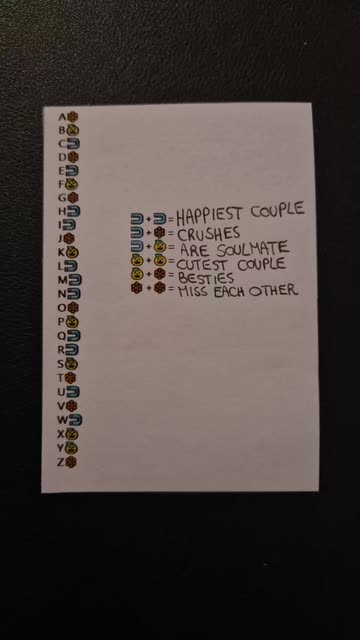 A
B
C
D
E
F
G
H
I
J
K
L
M
N
O
P
Q
R
S
T
U
V
W
X
Y
Z
+ = HAPPIEST COUPLE
+ = CRUSHES
+ = ARE SOULMATE
+ = CUTEST COUPLE
+ = BESTIES
+ = MISS EACH OTHER